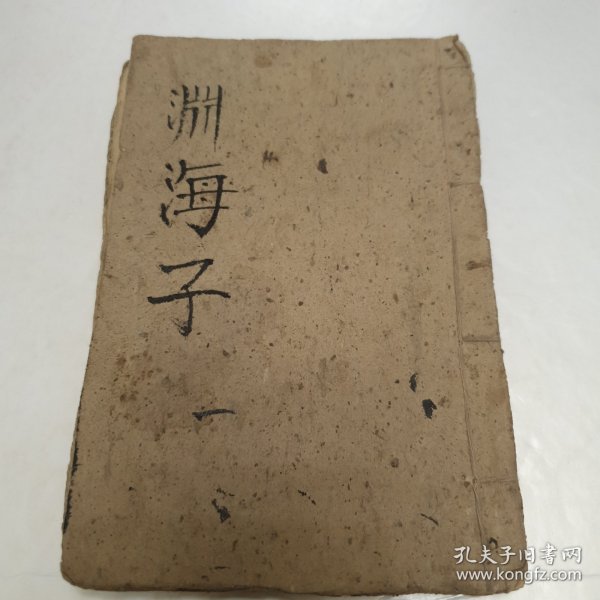 淵海子
一
孔夫子旧書网
www.kongfz.com